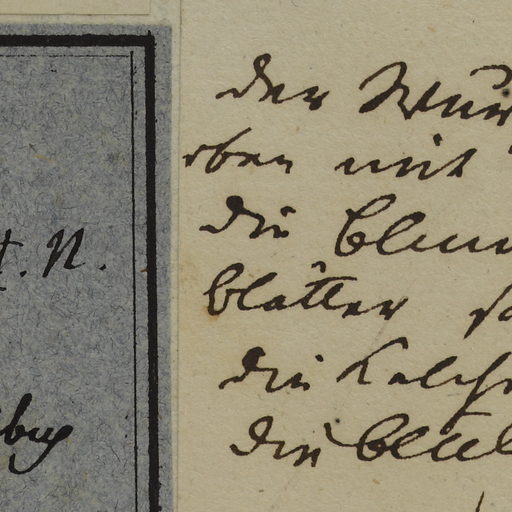 t. N.
der Wur
oben mit
die Blum
blätter
die Kelch
die Blü